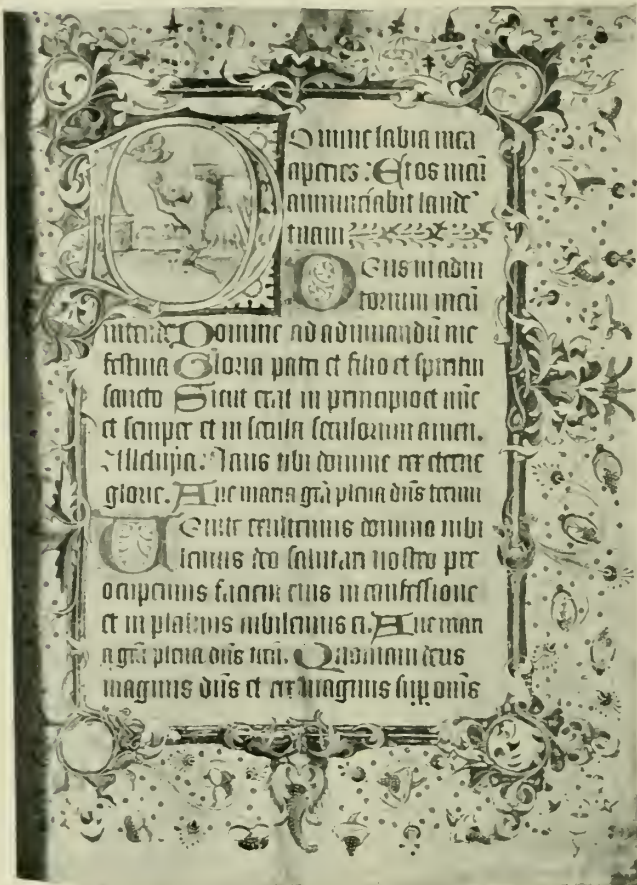 Omine labia mea
aperies : Et os meū
annunciabit laudē
tuam
Deus in adiu
torium meū
intende Domine ad adiuuandū me
festina Gloria patri et filio et spiritui
sancto Sicut erat in principio et nūc
et semper et in secula seculorum amen.
Alleluya. Laus tibi domine rex eterne
glorie. Aue maria grā plena dn̄s tecum
Uenite exultemus domino iubi
lemus deo salutari nostro pre
ocupemus faciem eius in confessione
et in psalmis iubilemus ei. Aue mari
a grā plena dn̄s tecū. Quoniam deus
magnus dn̄s et rex magnus sup omēs